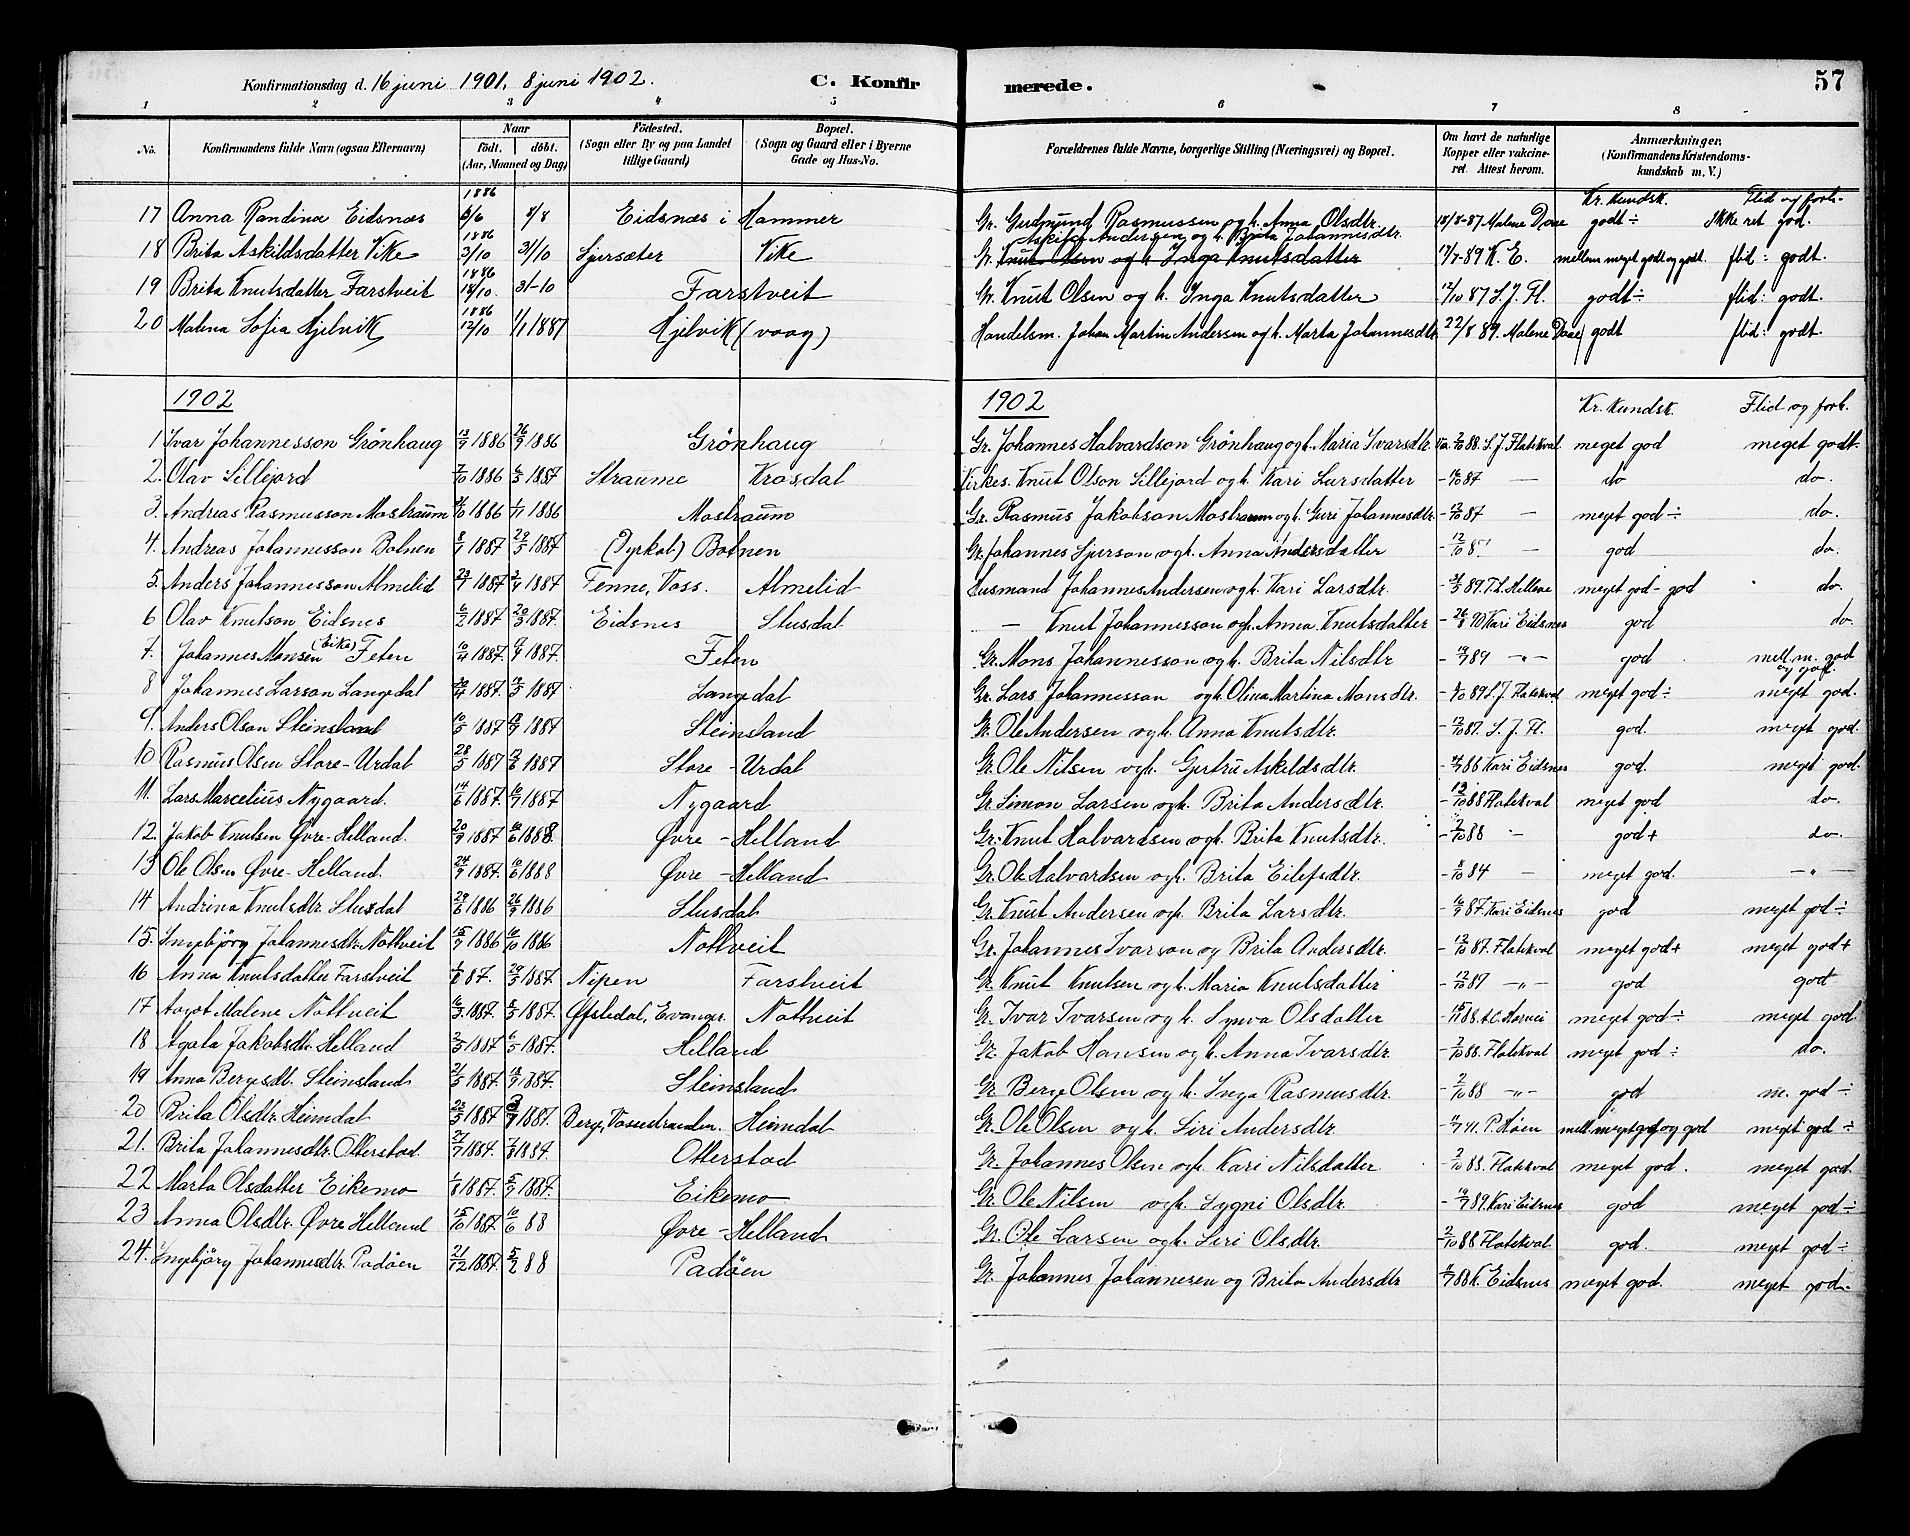 Konfirmationsdag d. 16 juni 1901, 8 juni 1902. C. Konfir merede. 57
1 2 3 4 5 6 7 8
No. Konfirmandens fulde Navn (ogsaa Efternavn) Naar födt. döbt. (Aar, Maaned og Dag) Födested. (Sogn eller By og paa Landet tillige Gaard) Bopæl. (Sogn og Gaard eller i Byerne Gade og Hus-No.) Forældrenes fulde Navne, borgerlige Stilling (Næringsvei) og Bopæl. Om havt de naturlige Kopper eller vakcineret. Attest herom. Anmærkninger. (Konfirmandens Kristendomskundskab m. V.)
Kr. kundsk. Flid og forh.
17 Anna Randina Eidsnæs 1886 /6 /8 Eidsnæs i Hammer Gr. Gudmund Rasmussen og h. Anna Olsdtr. 18/8-87 Malene Daae godt ÷ Ikke ret god.
Askild Andersen og h. Brita Johannesdtr.
18 Brita Askildsdatter Vike 1886 3/10 31/10 Sjursæter Vike Gr. Knut Olsen og h. Inga Knutsdatter 17/7-89 K. E. mellem meget godt og godt flid: godt.
19 Brita Knutsdatter Farstveit 1886 18/10 31-10 Farstveit Gr. Knut Olsen og h. Inga Knutsdatter 12/10 87 S. J. Fl. godt ÷ flid: godt.
20 Malena Sofia Hjelvik 1886 12/10 1/1 1887 Hjelvik (vaag) Handelsm. Johan Martin Andersen og h. Marta Johannesdtr. 22/8 89. Malene Daae godt flid: godt.
1902 1902 Kr. kundsk. Flid og forh.
1 Ivar Johannesson Grönhaug 13/9 1886 26/9 1886 Grönhaug Gr. Johannes Halvardson Grönhaug og h. Maria Ivarsdtr. va. 2/10 88. S. J. Flatekval meget god meget godt.
2. Olav Sillejord 7/10 1886 6/3 1887 Straume Krosdal Kirkes. Knut Olson Sillejord og h. Kari Larsdatter /10 87 — do do.
3. Andreas Rasmusson Mostraum /10 1886 1/11 1886 Mostraum Gr. Rasmus Jakobson Mostraum og h. Guri Johannesdtr. - 12/10 87 — meget god ÷ do.
4. Andreas Johannesson Botnen 8/1 1887 29/5 1887 (Dyrkol.) Botnen Gr. Johannes Sjurson og h. Anna Andersdatter - 12/10 87 — god do.
5. Anders Johannesson Almelid 23/1 1887 3/4 1887 Fenne, Voss. Almelid Husmand Johannes Andersen og h. Kari Larsdtr. - 31/5 89. T. L. Hellene meget god - god do.
6 Olav Knutson Eidsnes 6/2 1887 20/3 1887. Eidsnes Stusdal — Knut Johannesson og h. Anna Knutsdatter - 26/8 90 Kari Eidsnes god do.
7. Johannes Monsen (Eike) Feten 10/4 1887. /7 1887. Feten Gr. Mons Johannesson og h. Brita Nilsdtr /7 89 -"- god mell. m. god og god.
8 Johannes Larson Langedal /4 1887. /5 1887 Langedal Gr. Lars Johannesson og h. Olina Martina Monsdtr. /10 89 S. J. Flatekval meget god ÷ meget god.
9. Anders Olson Steinsland 10/5 1887 /7 1887 Steinsland Gr. Ole Andersen og h. Anna Knutsdtr. - 12/10 87. S. J. Fl. god. meget god.
10 Rasmus Olsen Store-Urdal 28/5 1887 /6 1887 Store-Urdal Gr. Ole Nilsen og h. Gjertru Askildsdtr. /7 88 Kari Eidsnes god. meget god.
11. Lars Marcelius Nygaard. 14/6 1887. /7 1887 Nygaard Gr. Simon Larsen og h. Brita Andersdtr. /10 88 Flatekval meget god do.
12. Jakob Knutsen Øvre-Helland. 20/9 1887 10/6 1888. Øvre-Helland Gr. Knut Halvardsen og h. Brita Knutsdtr. - 2/10 88 — god + do.
13 Ole Olsen Øvre-Helland. 24/9 1887. 10/6 1888 Øvre-Helland Gr. Ole Halvardsen og h. Brita Eilefsdtr. /10 84 — meget god. —"—
14 Andrina Knutsdtr. Stusdal 29/6 1886 26/9 1886 Stusdal Gr. Knut Andersen og h. Brita Larsdtr. /9 87. Kari Eidsnes god meget god ÷
15. Ingebjörg Johannesdtr. Nottveit 15/9 1886 /10 1886 Nottveit Gr. Johannes Ivarson og Brita Andersdtr. - 12/10 87. Flatekval meget god + meget god +
16 Anna Knutsdatter Farstveit 87. 20/3 1887. Nipen Farstveit Gr. Knut Knutsen og h. Maria Knutsdatter - 12/10 87 —"— god god
17 Aagot Malene Nottveit /3 1887. /5 1887. Øfstedal, Evanger. Nottveit Gr. Ivar Ivarsen og h. Synva Olsdatter - 15/11 88. meget god ÷ meget god.
18 Agata Jakobsdtr. Helland 2/3 1887 6/5 1887. Helland Gr. Jakob Hansen og h. Anna Ivarsdtr. - 2/10 88. Flatekval meget god ÷ do.
19 Anna Bergesdtr. Steinsland 21/5 1887. 18/9 1887. Steinsland Gr. Berge Olsen og h. Inga Rasmusdtr. - 2/10 88 —"— god m. god ÷
20 Brita Olsdtr. Heimdal 23/5 1887 /7 1887. Berge, Vossestranden. Heimdal Gr. Ole Olsen og h. Siri Andersdtr. P. Moen mell. meget god og god meget god ÷
21. Brita Johannesdtr. Otterstad. 21/7 1887. 7/8 1887. Otterstad Gr. Johannes Olsen og h. Kari Nilsdatter - 2/10 88. Flatekval meget god. meget god.
22 Marta Olsdatter Eikemo 1/8 1887. /9 1887. Eikemo Gr. Ole Nilsen og h. Sygni Olsdtr. /7 89. Kari Eidsnes god meget god ÷
23 Anna Olsdtr. Øvre Helland 15/10 1887. 10/6 88 Øvre-Helland Gr. Ole Larsen og h. Siri Olsdtr. - 2/10 88 Flatekval god. meget god ÷
24. Ingebjörg Johannesdtr. Padöen 21/12 1887. 5/2 88 Padöen Gr. Johannes Johannesen og Brita Andersdtr /7 88 K. Eidsnes meget god. meget god.